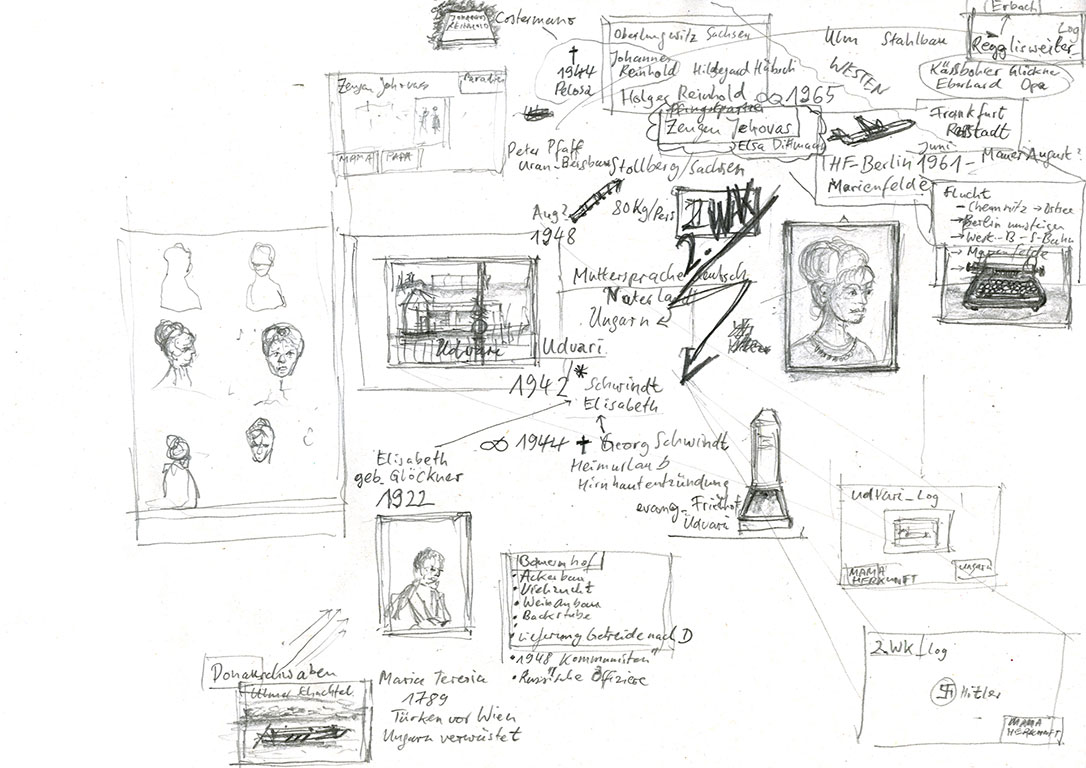 JOHANNES
REINHOLD
Costermano
✝
1944
Pelosa
Oberlungwitz Sachsen
Johannes
Reinhold Hildegard Hübsch
Holger Reinhold ∞ 1965
Zeugen Jehovas
Elsa Dittmann
Ulm Stahlbau
WESTEN
Erbach
Log
Regglisweiler
Käßboher Glöckner
Eberhard Opa
Frankfurt
Rastadt
Juni
THF-Berlin 1961 - Mauer August?
Marienfelde
Flucht
- Chemnitz → Ostsee
→ Berlin umsteigen
→ West-B-S-Bahn
→ Marienfelde
Zeugen Jehovas
Paradies
MAMA
PAPA
Peter Pfaff
Uran-Bergbau Stollberg/Sachsen
Aug?
1948
80 Kg/Pers
II WK
2.
Muttersprache Deutsch
Vaterland
Ungarn
Udvari
Udvari
1942 * Schwindt
Elisabeth
∞ 1944 ✝ Georg Schwindt
Heimurlaub
Hirnhautentzündung
evang. Friedhof
Udvari
Elisabeth
geb. Glöckner
1922
Bauernhof
• Ackerbau
• Viehzucht
• Weinanbau
• Backstube
• Lieferung Getreide nach D
• 1948 "Kommunisten"
• Russische Offiziere
Donauschwaben
Ulmer Schachtel
Maria Teresia
1789
Türken vor Wien
Ungarn verwüstet
Udvari_Log
MAMA
HERKUNFT
Ungarn
2.WK_Log
Hitler
MAMA
HERKUNFT